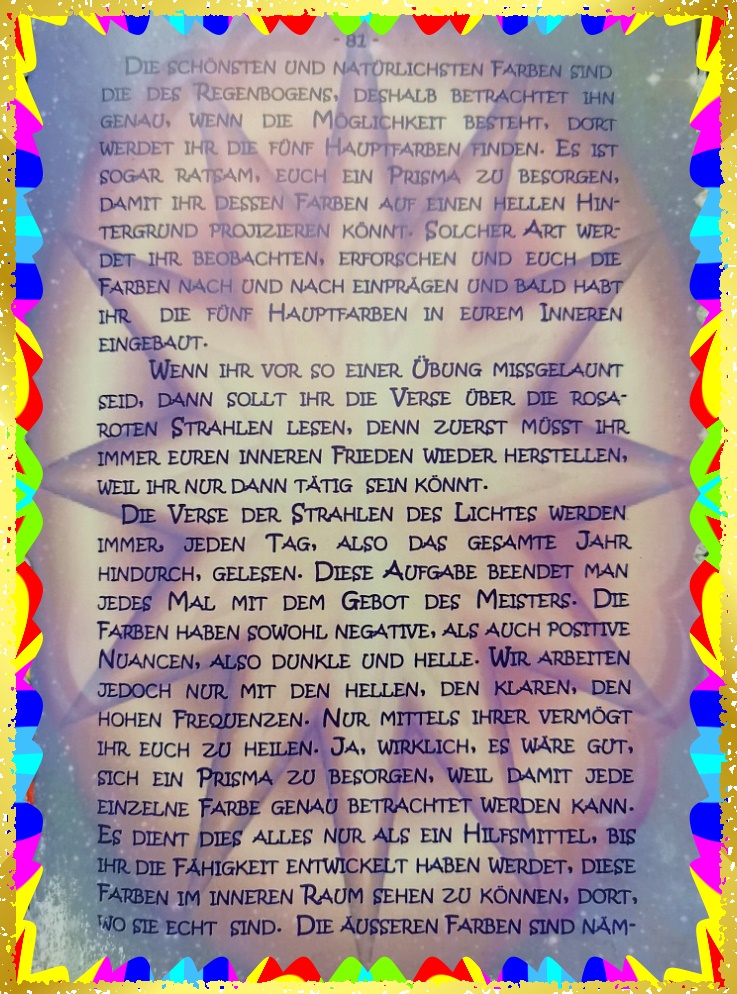 - 81 -
Die schönsten und natürlichsten Farben sind
die des Regenbogens, deshalb betrachtet ihn
genau, wenn die Möglichkeit besteht, dort
werdet ihr die fünf Hauptfarben finden. Es ist
sogar ratsam, euch ein Prisma zu besorgen,
damit ihr dessen Farben auf einen hellen Hin-
tergrund projizieren könnt. Solcher Art wer-
det ihr beobachten, erforschen und euch die
Farben nach und nach einprägen und bald habt
ihr die fünf Hauptfarben in eurem Inneren
eingebaut.
Wenn ihr vor so einer Übung missgelaunt
seid, dann sollt ihr die Verse über die rosa-
roten Strahlen lesen, denn zuerst müsst ihr
immer euren inneren Frieden wieder herstellen,
weil ihr nur dann tätig sein könnt.
Die Verse der Strahlen des Lichtes werden
immer, jeden Tag, also das gesamte Jahr
hindurch, gelesen. Diese Aufgabe beendet man
jedes Mal mit dem Gebot des Meisters. Die
Farben haben sowohl negative, als auch positive
Nuancen, also dunkle und helle. Wir arbeiten
jedoch nur mit den hellen, den klaren, den
hohen Frequenzen. Nur mittels ihrer vermögt
ihr euch zu heilen. Ja, wirklich, es wäre gut,
sich ein Prisma zu besorgen, weil damit jede
einzelne Farbe genau betrachtet werden kann.
Es dient dies alles nur als ein Hilfsmittel, bis
ihr die Fähigkeit entwickelt haben werdet, diese
Farben im inneren Raum sehen zu können, dort,
wo sie echt sind. Die äusseren Farben sind näm-